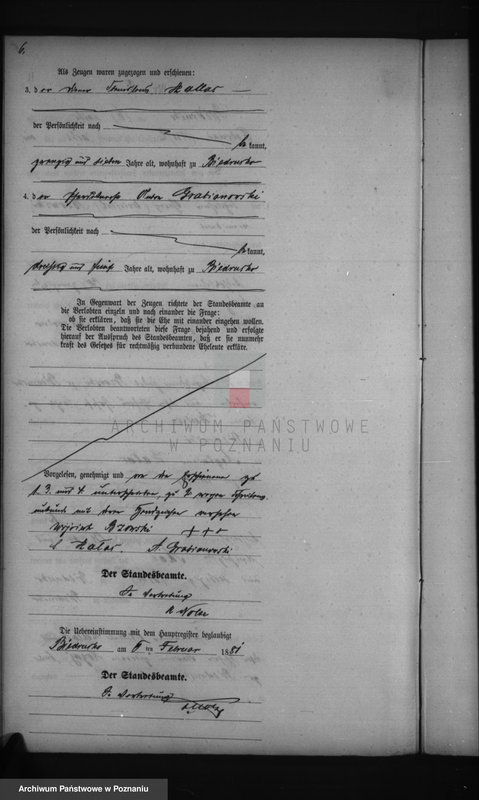 6.
Als Zeugen waren zugezogen und erschienen:
3. der Hallas
der Persönlichkeit nach
bekannt,
zwanzig und sieben Jahre alt, wohnhaft zu Biedrusko
4. der Grabianowski
der Persönlichkeit nach
bekannt,
dreißig und fünf Jahre alt, wohnhaft zu Biedrusko
In Gegenwart der Zeugen richtete der Standesbeamte an
die Verlobten einzeln und nach einander die Frage:
ob sie erklären, daß sie die Ehe mit einander eingehen wollen.
Die Verlobten beantworteten diese Frage bejahend und erfolgte
hierauf der Ausspruch des Standesbeamten, daß er sie nunmehr
kraft des Gesetzes für rechtmäßig verbundene Eheleute erkläre.
ARCHIWUM PAŃSTWOWE
W POZNANIU
Vorgelesen, genehmigt und von den Erschienenen zu
1. 3. und 4 unterschrieben, zu 2 wegen Schreibens-
mit dem Handzeichen versehen
+ + +
A. Grabianowski
Der Standesbeamte.
In Vertretung
Die Uebereinstimmung mit dem Hauptregister beglaubigt
Biedrusko am 6 ten Februar 1881
Der Standesbeamte.
In Vertretung
Archiwum Państwowe w Poznaniu